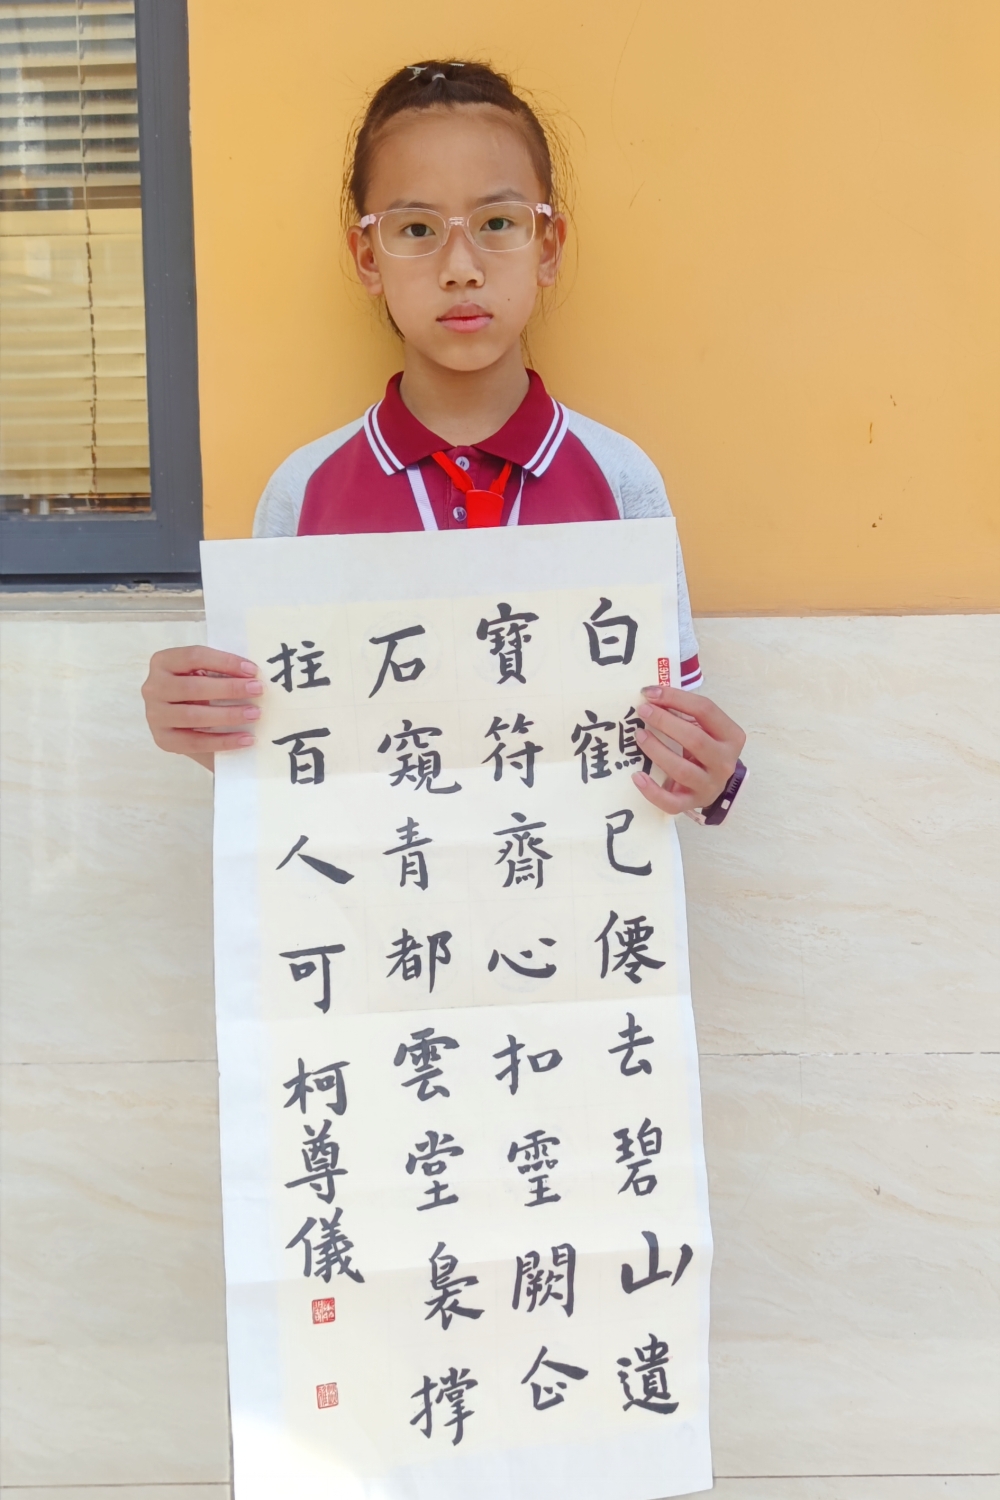 白鶴已僊去碧山遺
寶符齋心扣靈闕企
石窺青都雲堂裊撑
拄百人可
柯尊儀